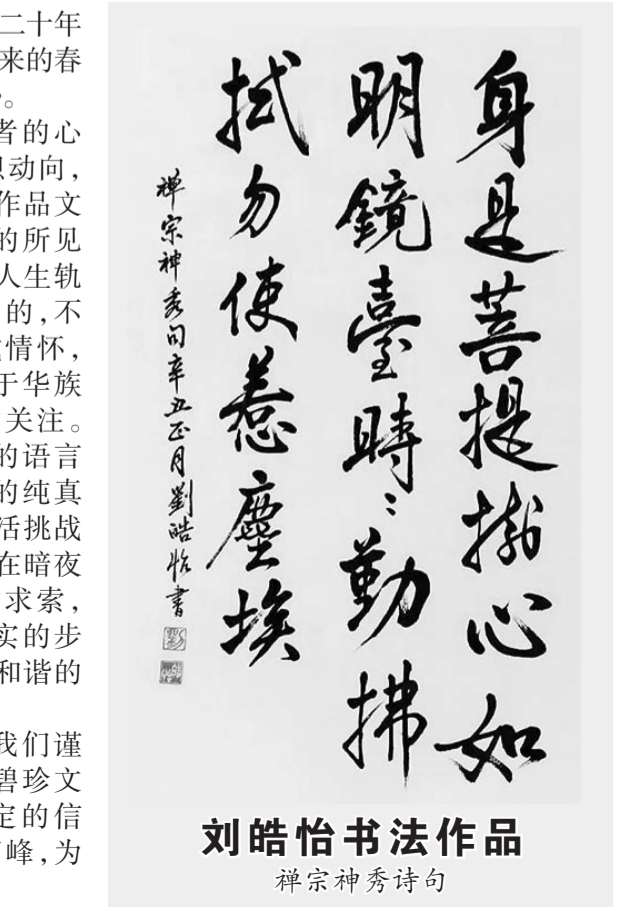 二十年
来的春
。
者的心
动向,
作品文
的所见
人生轨
的,不
情怀,
于华族
关注。
的语言
的纯真
活挑战
在暗夜
求索,
实的步
和谐的
我们谨
碧珍文
定的信
峰,为
身是菩提樹心如
明鏡臺時〻勤拂
拭勿使惹塵埃
禅宗神秀句辛丑正月劉皓怡書
刘皓怡书法作品
禅宗神秀诗句